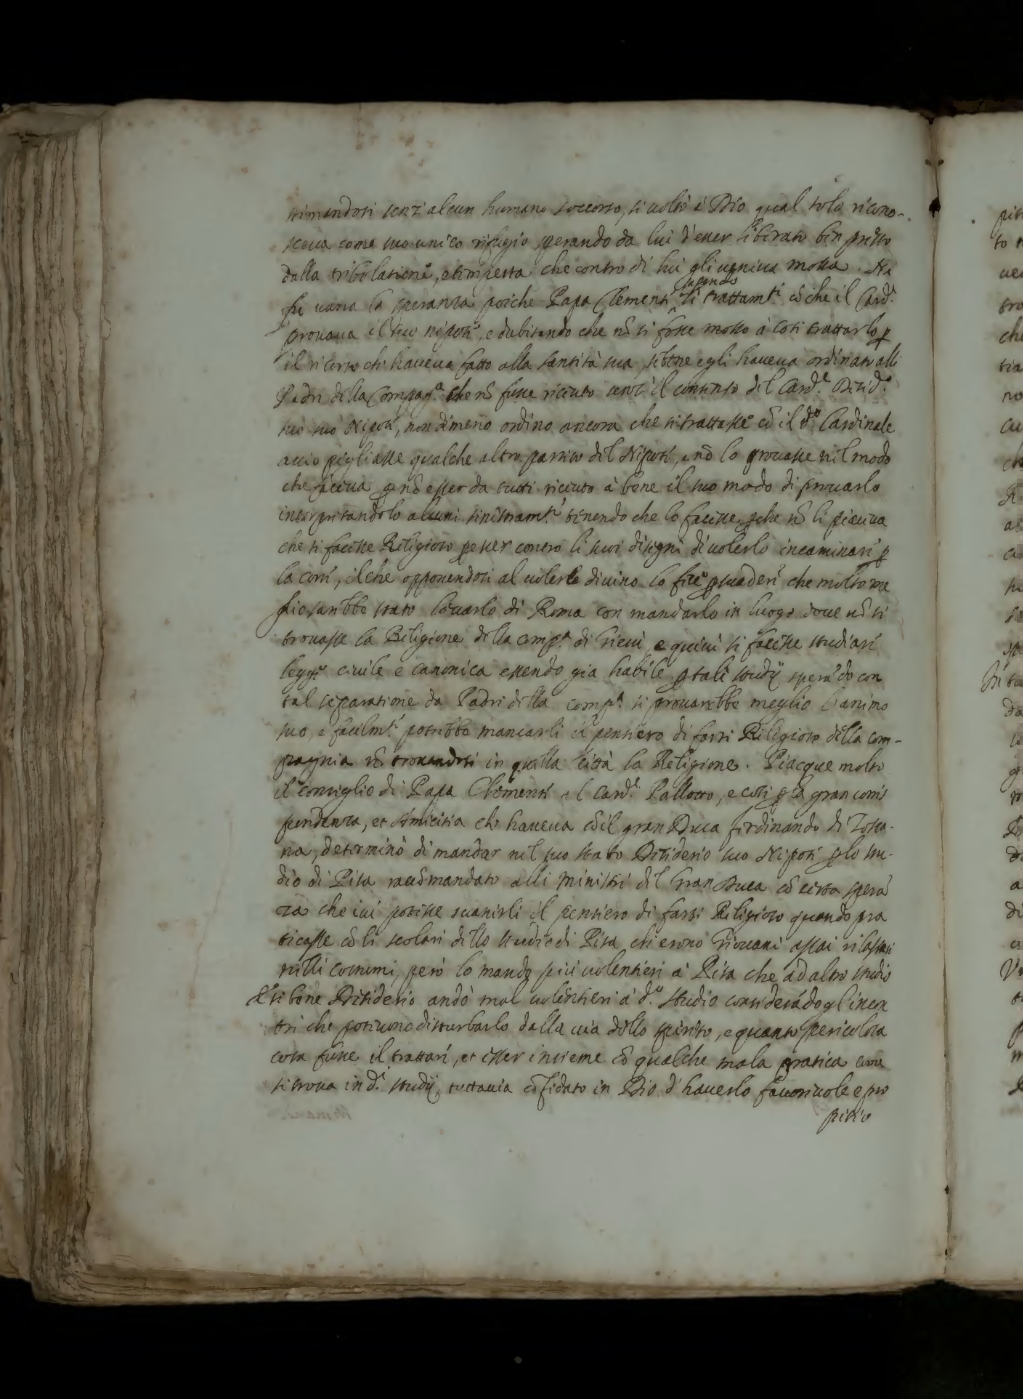 stimandosi senz'alcun humano soccorso, si voltò à Dio qual solo ricono-
sceva come suo unico rifugio sperando da lui d'esser liberato ben presto
dalla tribolatione, e tempesta che contro di lui gli veniva mossa. Ne
fu vana la speranza poiche Papa Clemente sapendo li trattamti cõ che il Cardl
provava il suo nipote, e dubitando che nõ si fosse mosso à cosi trattarlo p
il ricorso che haveva fatto alla santità sua, sebene egli haveva ordinato alli
Padri della Compaga che nõ fusse riceuto senz'il consenso del Cardle
suo Nipote, nondimeno ordino ancora che si trattasse cõ il do Cardinale
accio pigliasse qualche altro partito del Nipote, e nõ lo provasse nel modo
che faceva p nõ esser da tutti riceuto à bene il suo modo di provarlo
interpretandolo alcuni sinistramte tenendo che lo facesse pche nõ li piaceva
che si facesse Religioso p esser contro li suoi disegni di volerlo incaminare p
la corte, il che opponendosi al volere divino lo fece psuadere che molto me
glio sarebbe stato levarlo di Roma con mandarlo in luogo dove nõ si
trovasse la Religione della compa di Giesù, e quivi si facesse studiare
legge civile e canonica essendo gia habile p tali studij sperãdo con
tal separatione da Padri della compa si provarebbe meglio l'animo
suo, e facilmte potrebbe mancarli il pensiero di farsi Religioso della com-
pagnia nõ trovandosi in quella città la Religione. Piacque molto
il consiglio di Papa Clemente al Cardl Pallotto, e cosi p la gran corris
pondenza, et Amicitia che haveva cõ il gran Duca ferdinando di Tosca-
na, determinò di mandar nel suo stato Desiderio suo Nipote p lo stu-
dio di Pisa racõmandato alli Ministri del Gran Duca cõ certa sperã
za che ivi potesse svanirli il pensiero di farsi Religioso quando pra
ticasse cõ li scolari dello studio di Pisa, che erono Giovani assai rilassati
nelli costumi, però lo mandò più volentieri à Pisa che ad altro studio
E sebene Desiderio andò mal volẽtieri à do studio considerãdo gl'incon
tri che potevono disturbarlo dalla via dello spirito, e quanto pericolosa
cosa fusse il trattare, et esser insieme cõ qualche mala pratica come
si trova in di studij, tuttavia cõfidato in Dio d'haverlo favorevole e pro
pitio